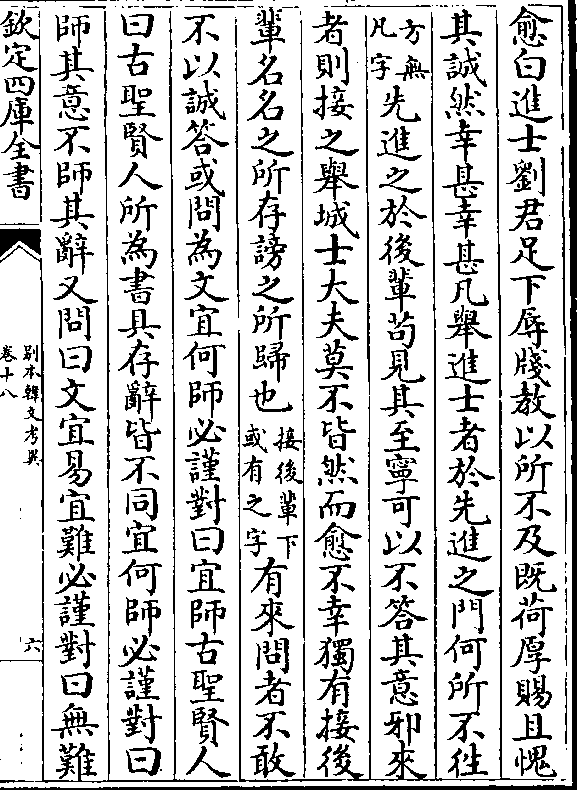 愈白進士劉君足下辱牋教以所不及既荷厚賜且愧
其誠然幸甚幸甚凡舉進士者於先進之門何所不往
方無
凡字
先進之於後輩苟見其至寧可以不答其意邪來
者則接之舉城士大夫莫不皆然而愈不幸獨有接後
輩名名之所存謗之所歸也
接後輩下
或有之字
有來問者不敢
不以誠答或問為文宜何師必謹對曰宜師古聖賢人
曰古聖賢人所為書具存辭皆不同宜何師必謹對曰
師其意不師其辭又問曰文宜易宜難必謹對曰無難
欽定四庫全書
別本韓文考異
卷十八
六